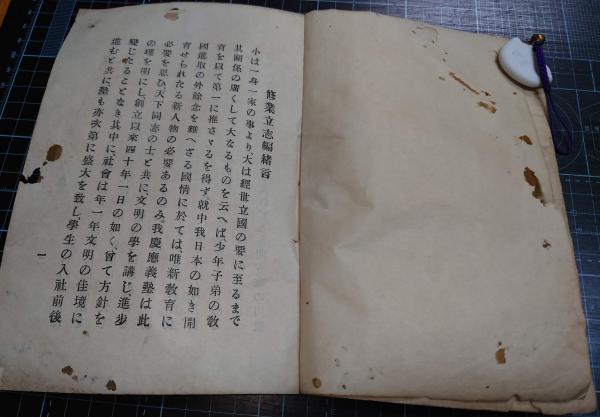 修業立志編緒言
小は一身一家の事より、大は經世立國の要に至るまで
其關係の廣くして大なるものを云へば、少年子弟の敎
育を以て第一に推さゞるを得ず就中我日本の如き開
國進取の外餘念を雜へざる國情に於ては唯新敎育に
育せられたる新人物の必要あるのみ、我慶應義塾は此
必要を思ひ、天下同志の士と共に、文明の學を講じ、進步
の理を明にし、創立以來四十年一日の如く、曾て方針を
變じたることなき其中に、社會は年一年文明の佳境に
進むと共に、塾も亦次第に盛大を致し、學生の入社前後
一